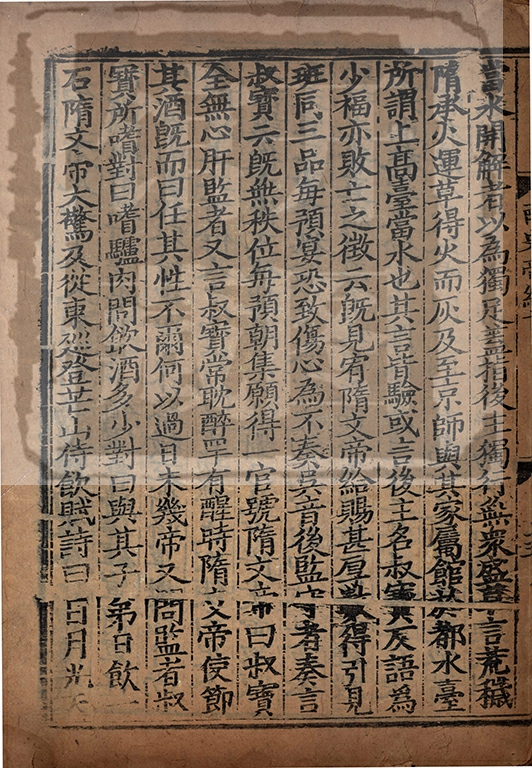 當水開解者以為獨足蓋指後主獨行無衆盛草言荒穢
隋承火運草得火而灰及至京師與其家屬館於都水臺
所謂上高臺當水也其言皆驗或言後主名叔寶反語為
少福亦敗亡之徵云旣見宥隋文帝給賜甚厚數得引見
班同三品每預宴恐致傷心為不奏吳音後監守者奏言
叔寶云旣無秩位每預朝集願得一官號隋文帝曰叔寶
全無心肝監者又言叔寶常耽醉罕有醒時隋文帝使節
其酒旣而曰任其性不爾何以過日未幾帝又問監者叔
寶所嗜對曰嗜驢肉問飲酒多少對曰與其子弟日飲一
石隋文帝大驚及從東廵登芒山侍飲賦詩曰日月光天